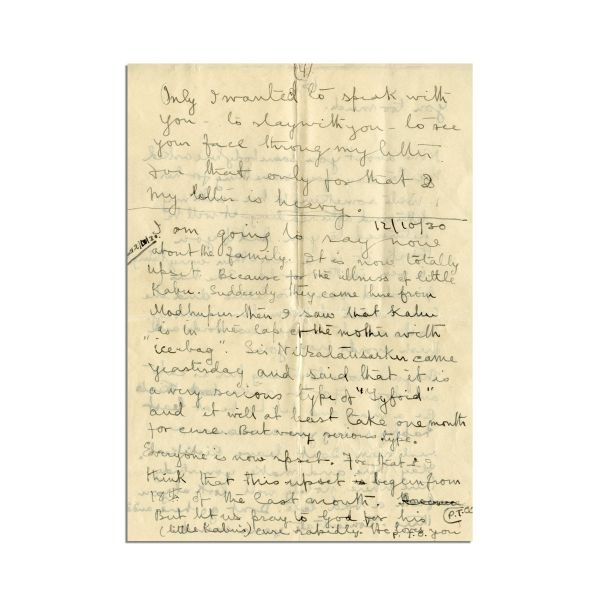 (4)
Only I wanted to speak with
you - to stay with you - to see
your face throug my letter.
that only for that
my letter is heavy.
12/10/20
I am going to say now
about the family. It is now totally
upset. Because for the illness of little
Kabu. Suddenly they came here from
Madhupur then I saw that Kabu
is in the lap of the mother with
"ice-bag". Sir Nilratan Sarkar came
yeasturday and said that it is
a very serious type of "Tyfoid"
and it will at least take one month
for cure. But very serious type.
Everyone is now upset. For that I
think that this upset is begin from
18th of the last month.
But let us pray to God for his
(little Kabu's) cure rapidly. He loves you
P.T.O.
P.T.O.